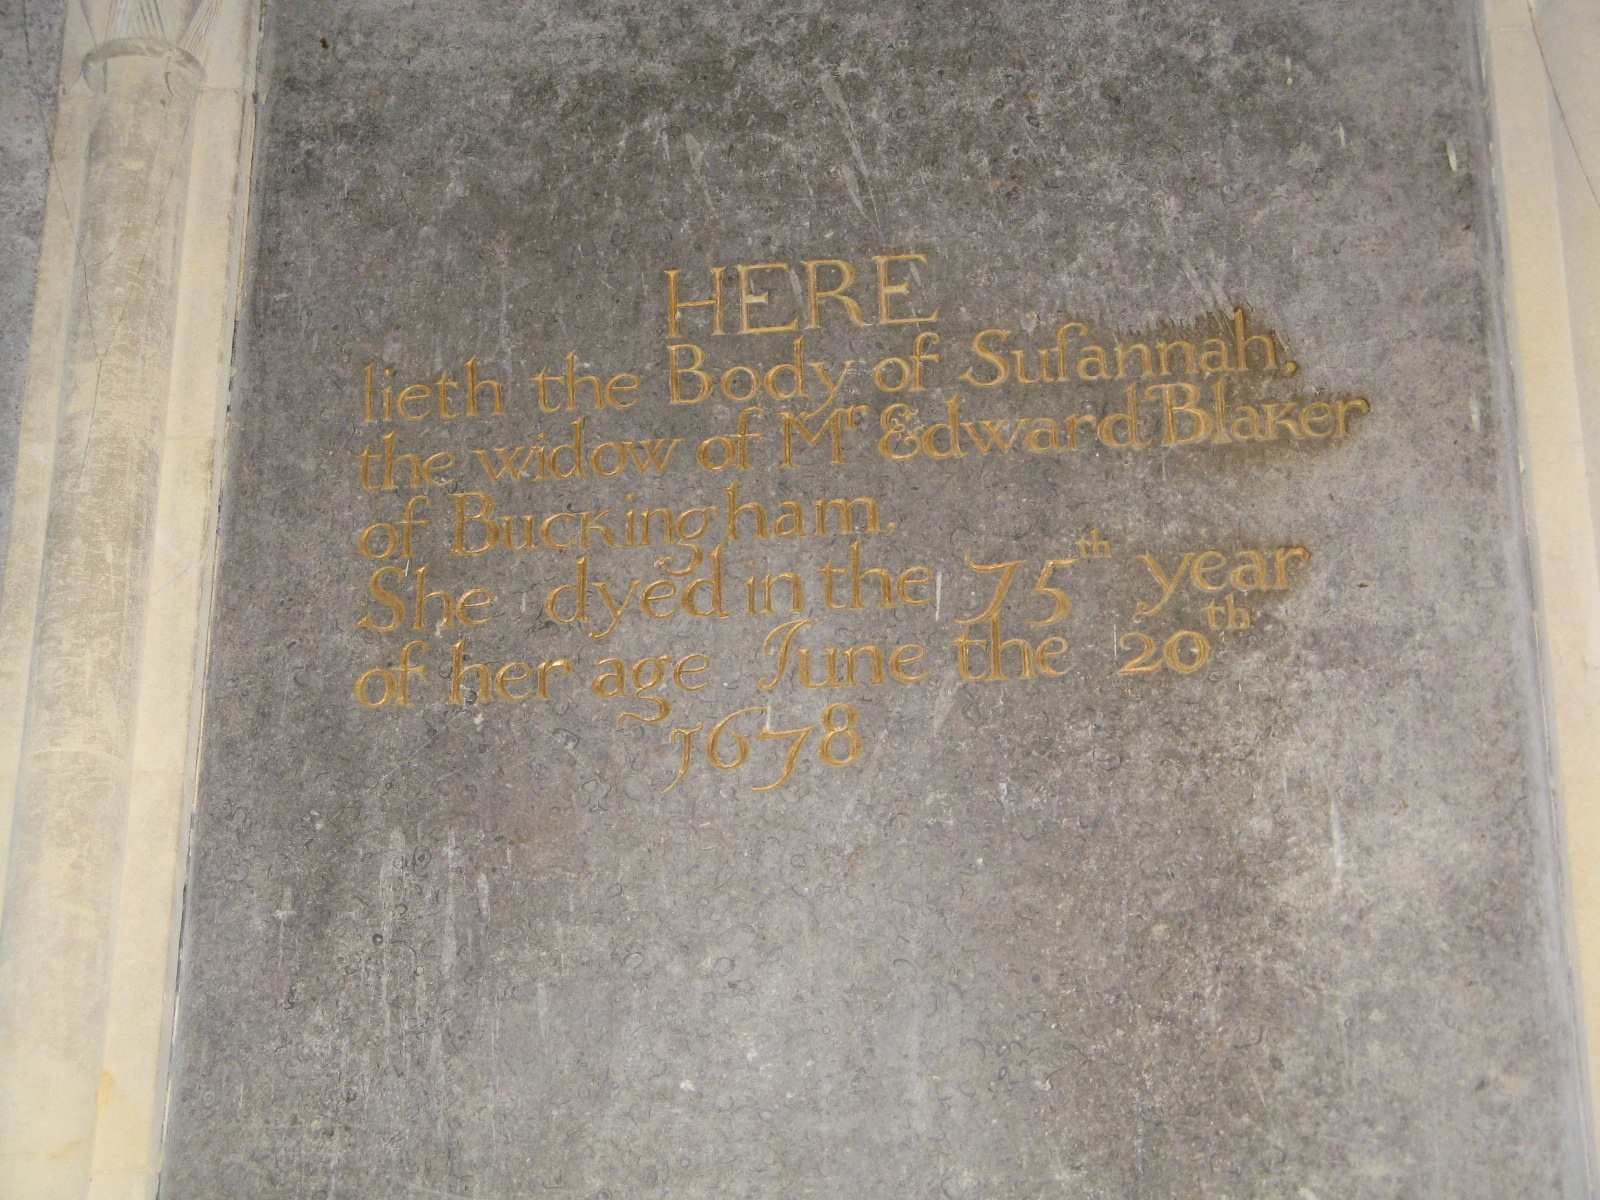 HERE
lieth the Body of Suſannah,
the widow of Mr Edward Blaker
of Buckingham.
She dyed in the 75th year
of her age June the 20th
1678